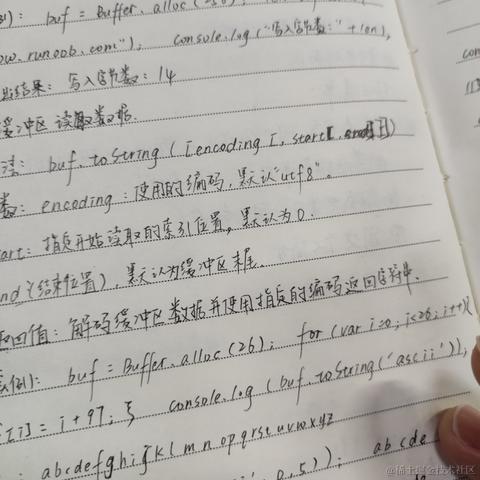 例): buf = Buffer.alloc(256);
ow.runoob.com"); console.log("写入字节数:"+len),
出结果: 写入字节数: 14
缓冲区 读取数据.
法: buf.toString([encoding[, start[, end]]])
数: encoding: 使用的编码, 默认"utf8".
art: 指定开始读取的索引位置, 默认为0.
nd(结束位置), 默认为缓冲区末尾.
返回值: 解码缓冲区数据并使用指定的编码返回字符串.
实例): buf = Buffer.alloc(26); for(var i=0; i<26; i++){
[i] = i+97; } console.log(buf.toString('ascii')),
: abcdefghijklmnopqrstuvwxyz
', 0,5)); abcde
com
@稀土掘金技术社区